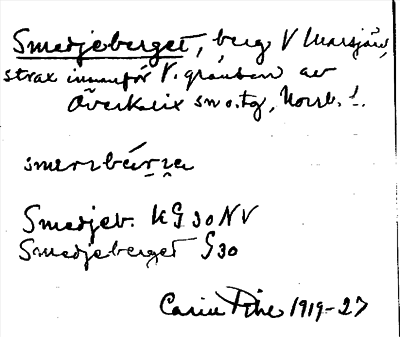 Smedjeberget, berg V Marsjärv,
strax innanför V. gränsen av
Överkalix sn o. tg, Norrb. l.
Smedjeb. KG 30 NV
Smedjeberget G30
Carin Pihl 1919-27